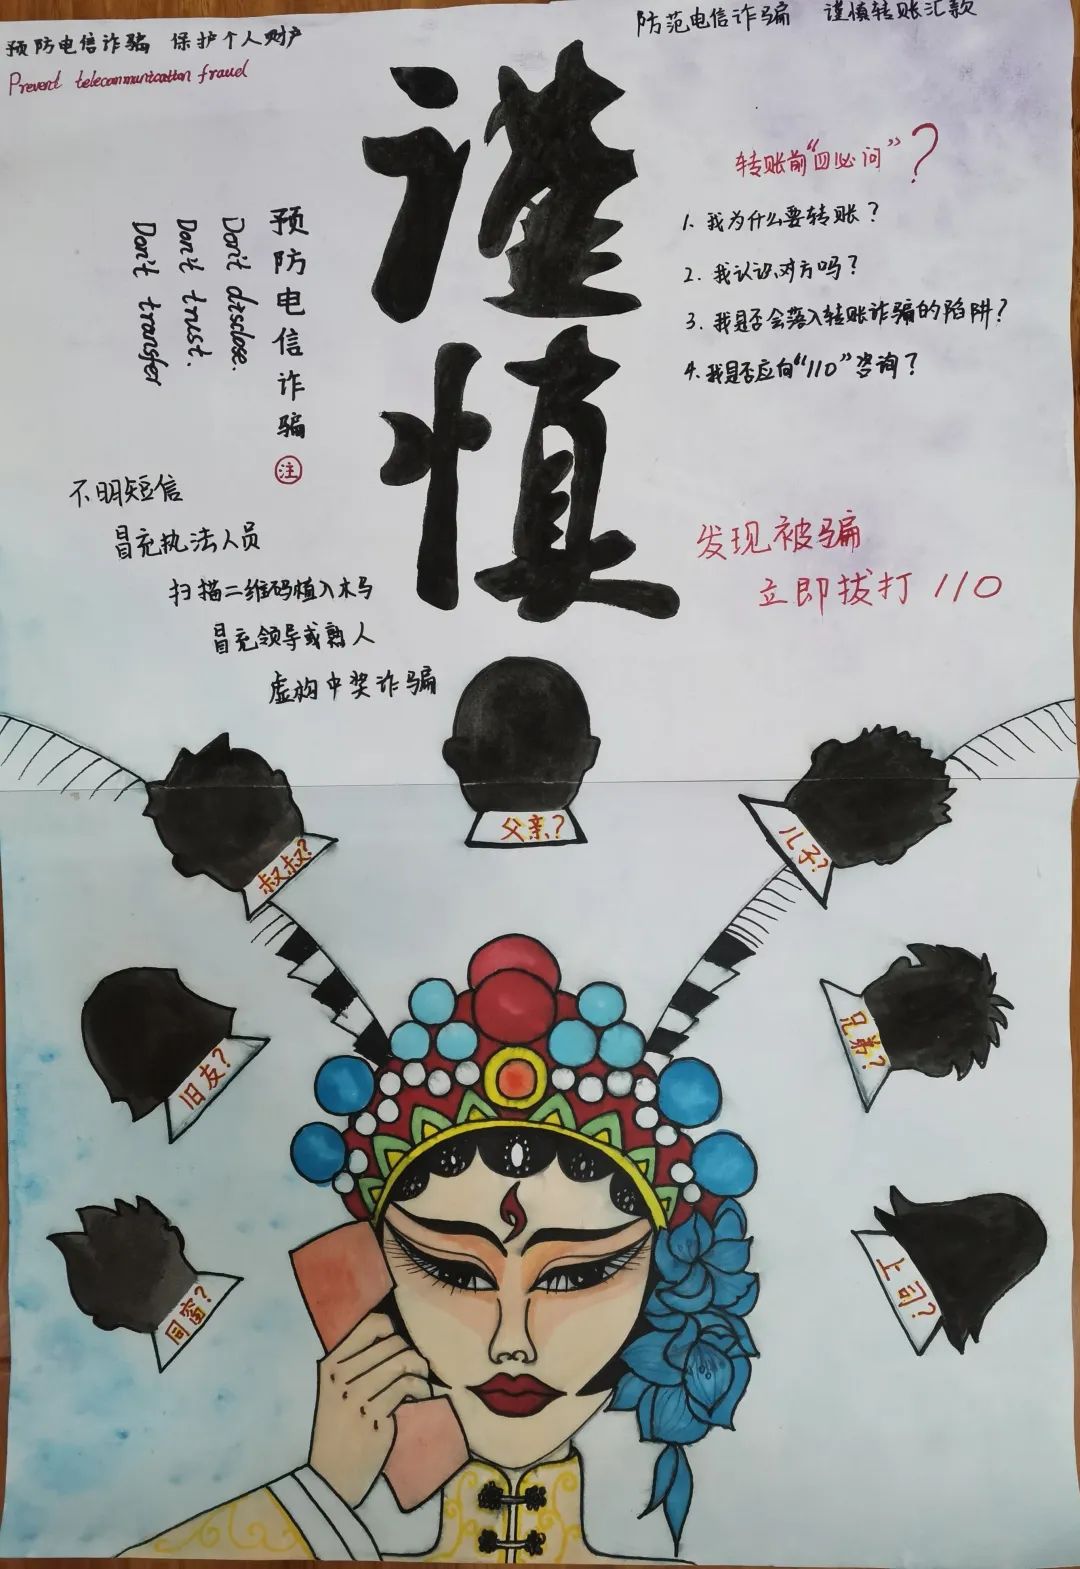 预防电信诈骗 保护个人财产
Prevent telecommunication fraud
防范电信诈骗 谨慎转账汇款
谨慎
转账前“四必问”?
1. 我为什么要转账?
2. 我认识对方吗?
3. 我是否会落入转账诈骗的陷阱?
4. 我是否应向“110”咨询?
预防电信诈骗 注
Don't disclose.
Don't trust.
Don't transfer
不明短信
冒充执法人员
扫描二维码植入木马
冒充领导或熟人
虚构中奖诈骗
发现被骗
立即拔打 110
叔叔?
父亲?
儿子?
旧友?
兄弟?
同窗?
上司?